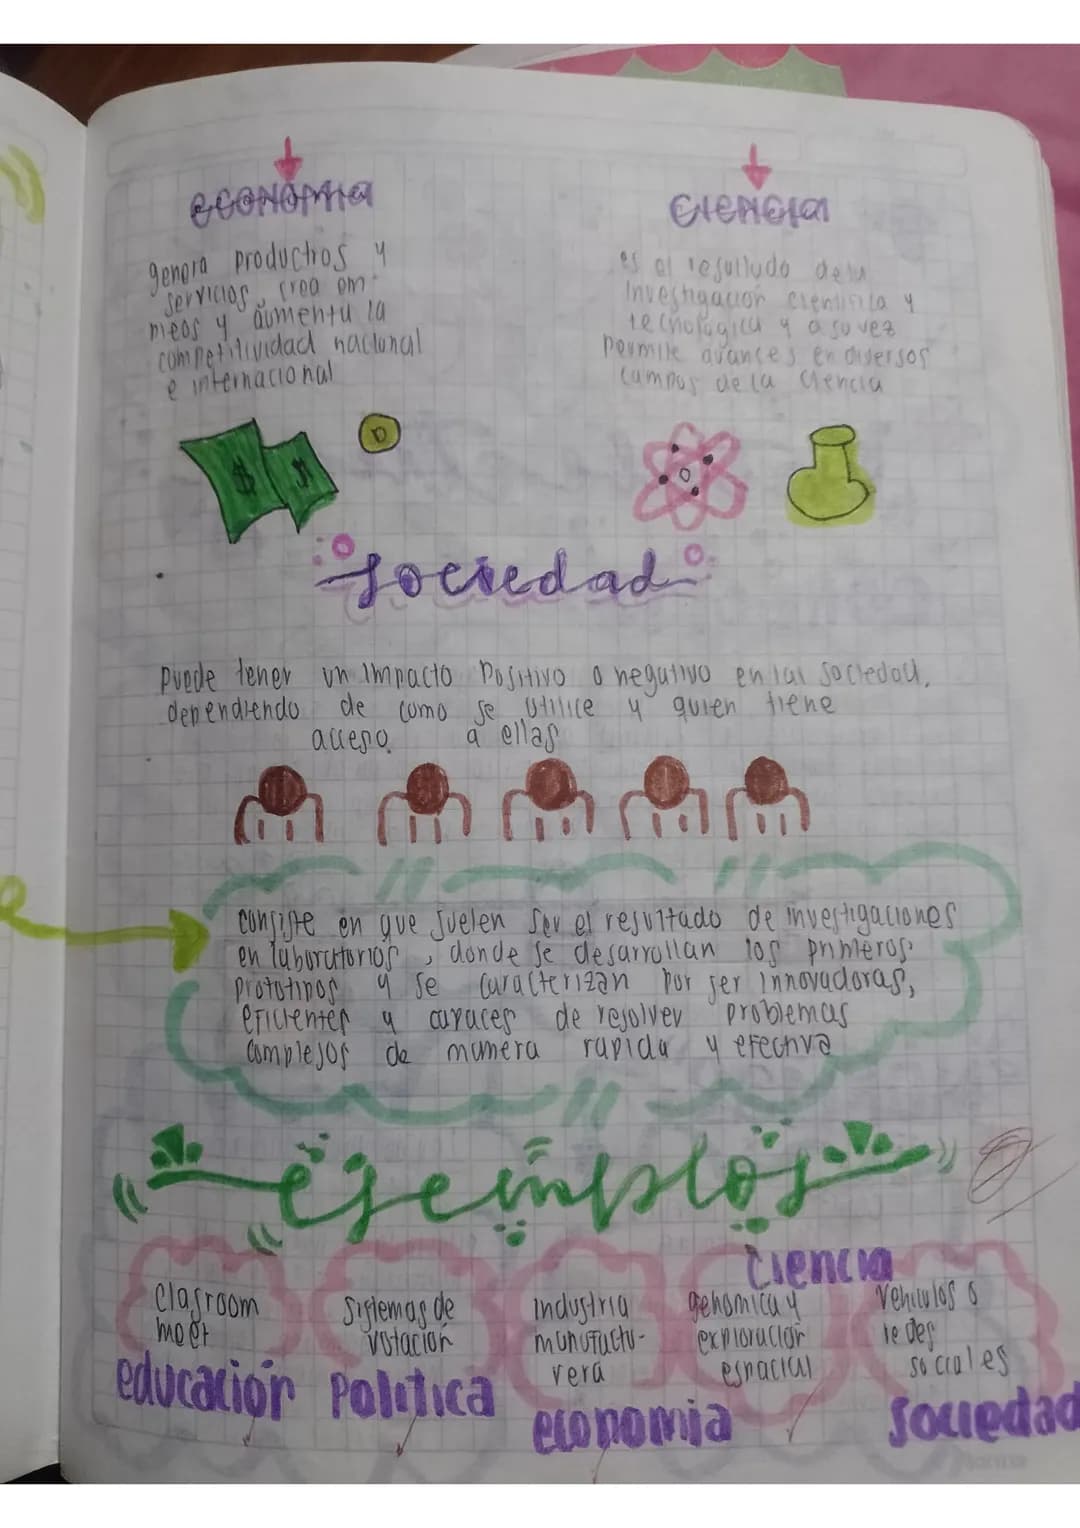 economia
genera productros y
servicios, crea em-
pleos y aumenta la
competitividad nacional
e internacional
ciencia
es el resultado de la
investigacion cientifica y
tecnologica y a su vez
permite avances en diversos
campos de la ciencia
$ $
D
sociedad
puede tener un impacto positivo o negativo en las sociedad,
dependiendo de como se utilice y quien tiene
acceso a ellas
consiste en que suelen ser el resultado de investigaciones
en laboratorios, donde se desarrollan los primeros
prototipos y se caracterizan por ser innovadoras,
eficientes y capaces de resolver problemas
complejos de manera rapida y efectiva
ejemplos
clasroom
meet
educación
sistemas de
votacion
Politica
industria
manufactu-
rera
economia
ciencia
genomica y
exploracion
espacial
vehiculos o
redes
sociales
sociedad